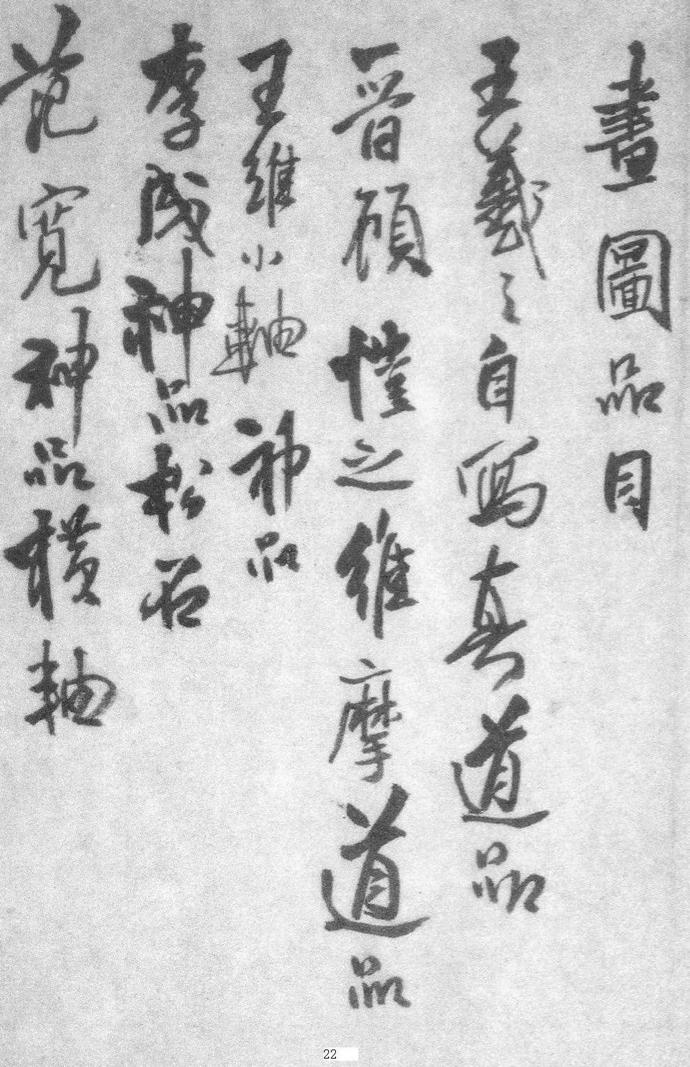 畫圖品目
王羲之自寫真道品
晉顧愷之維摩道品
王維小軸神品
李成神品松石
范寬神品橫軸
22